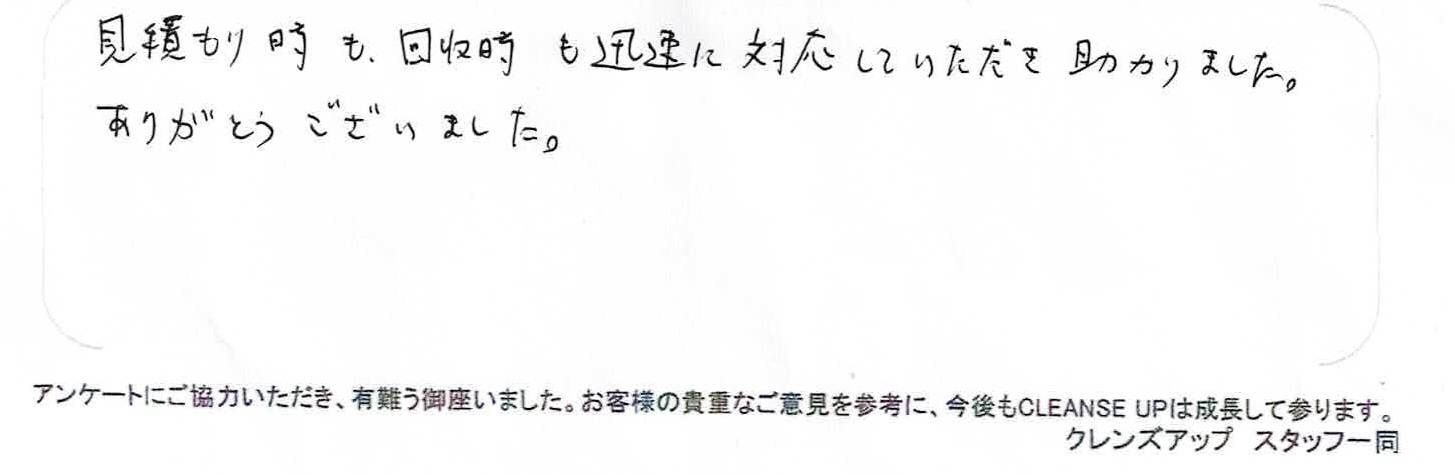 見積もり時も、回収時も迅速に対応していただき助かりました。
ありがとうございました。
アンケートにご協力いただき、有難う御座いました。お客様の貴重なご意見を参考に、今後もCLEANSE UPは成長して参ります。
クレンズアップ スタッフ一同